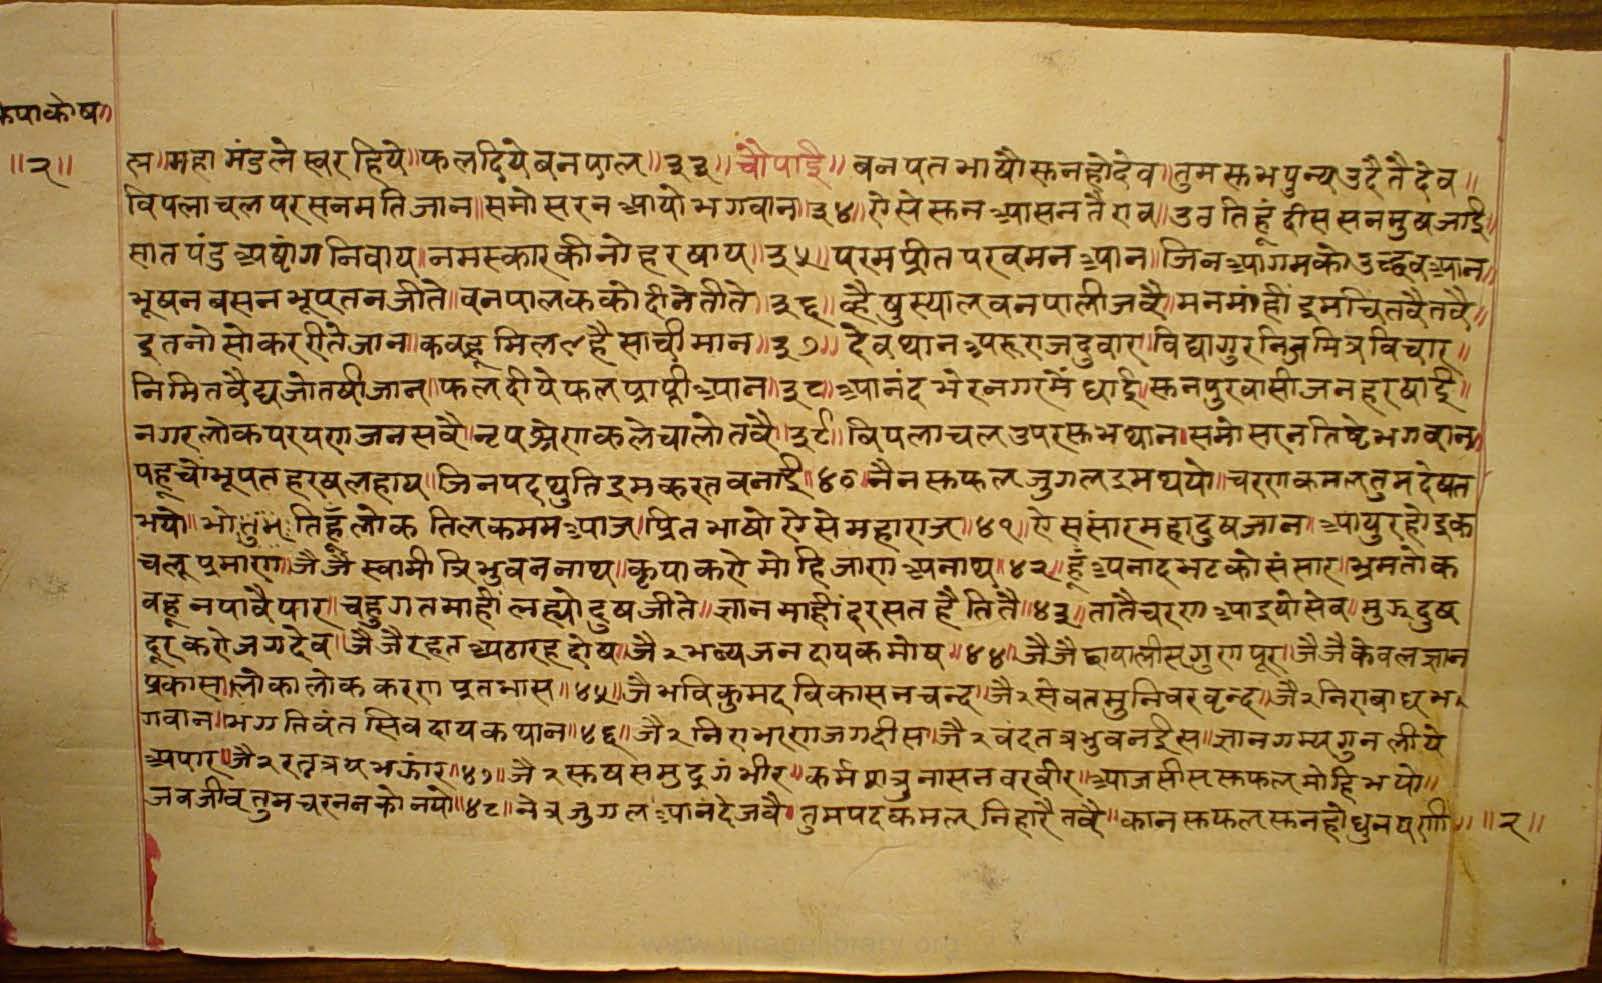 ॥२॥
त्न॥महा मंडलेस्वर हिये॥फल दिये बनपाल॥३३॥चौपाई॥बनपत भाषौ सुनहो देव॥तुम सुभ पुन्य उदै तै देव॥
विपलाचल पर सनमति जान॥समोसरन आयो भगवान॥३४॥ऐसे सुन आसन तै राव॥उठ तिहूं दीस सनमुष जाई॥
सात पंडु अष्टांग निवाय॥नमस्कार कीनो हरषाय॥३५॥परम प्रीत परवमन आन॥जिन आगम को उच्छव आन॥
भूषन बसन भूप तन जीते॥वनपालक को दीने तीते॥३६॥व्है षुस्याल वनपाली जवै॥मन मांहीं इम चितवै तवै॥
इतनो सोकर रीते जान॥कवहू मिल है साची मान॥३७॥देवथान अरु राजदुवारा॥विद्या गुर निज मित्र विचार॥
निमित वैद्य जोतषी जान॥फल दीये फल प्राप्ती आन॥३८॥आनंद भेर नगर में द्याई॥सुन पुरवासी जन हरषाई॥
नगर लोक परयण जन सवै॥नृप श्रेणक ले चालो तवै॥३९॥विपलाचल उपर सुभ थान॥समोसरन तिष्टे भगवान॥
पहूचो भूपत हरष लहाय॥जिनपद थुति इम करत वनाई॥४०॥नैन सुफल जुगल इम थयो॥चरण कमल तुम देषत
भयो॥भो तुम तिहूँ लोक तिलक मम आज॥प्रित भाषो ऐसे महाराज॥४१॥ऐ संसार महा दुष जान॥आयु रहो इक
चलू प्रमाण॥जै जै स्वामी त्रिभुवन नाथ॥कृपा करो मोहि जाण अनाथ॥४२॥हूं अनाद भटको संसार॥भ्रमतो क
वहू न पावै पार॥चहु गत माहीं लह्यो दुष जीते॥ज्ञान माहीं दरसत है तितै॥४३॥तातै चरण आइयो सेव॥मुझ दुष
दूर करो जगदेव॥जै जै रहत अठारह दोष॥जै२ भव्य जन दायक मोष॥४४॥जै जै छयालीस गुण पूर॥जै जै केवल ज्ञान
प्रकासा॥लोकालोक करण प्रतभास॥४५॥जै भवि कुमद विकासन चन्द॥जै२ सेवत मुनिवर वृन्द॥जै२ निराबाध भ
गवान॥भगतिवंत सिव दायक थान॥४६॥जै२ निराभरण जगदीस॥जै२ वंदत त्रभुवन ईस॥ज्ञान गम्य गुन लीयें
अपार॥जै२ रत्नत्रय भंडार॥४७॥जै२ सुष समुद्र गंभीर॥कर्म शत्रु नासन वरवीर॥आज सीस सुफल मोहि भयो॥
जव जीव तुम चरनन को नयो॥४८॥नेत्र जुगल आनंदे जवै॥तुम पद कमल निहारै तवै॥कान सुफल सुन हो धुन षणी॥ ॥२॥